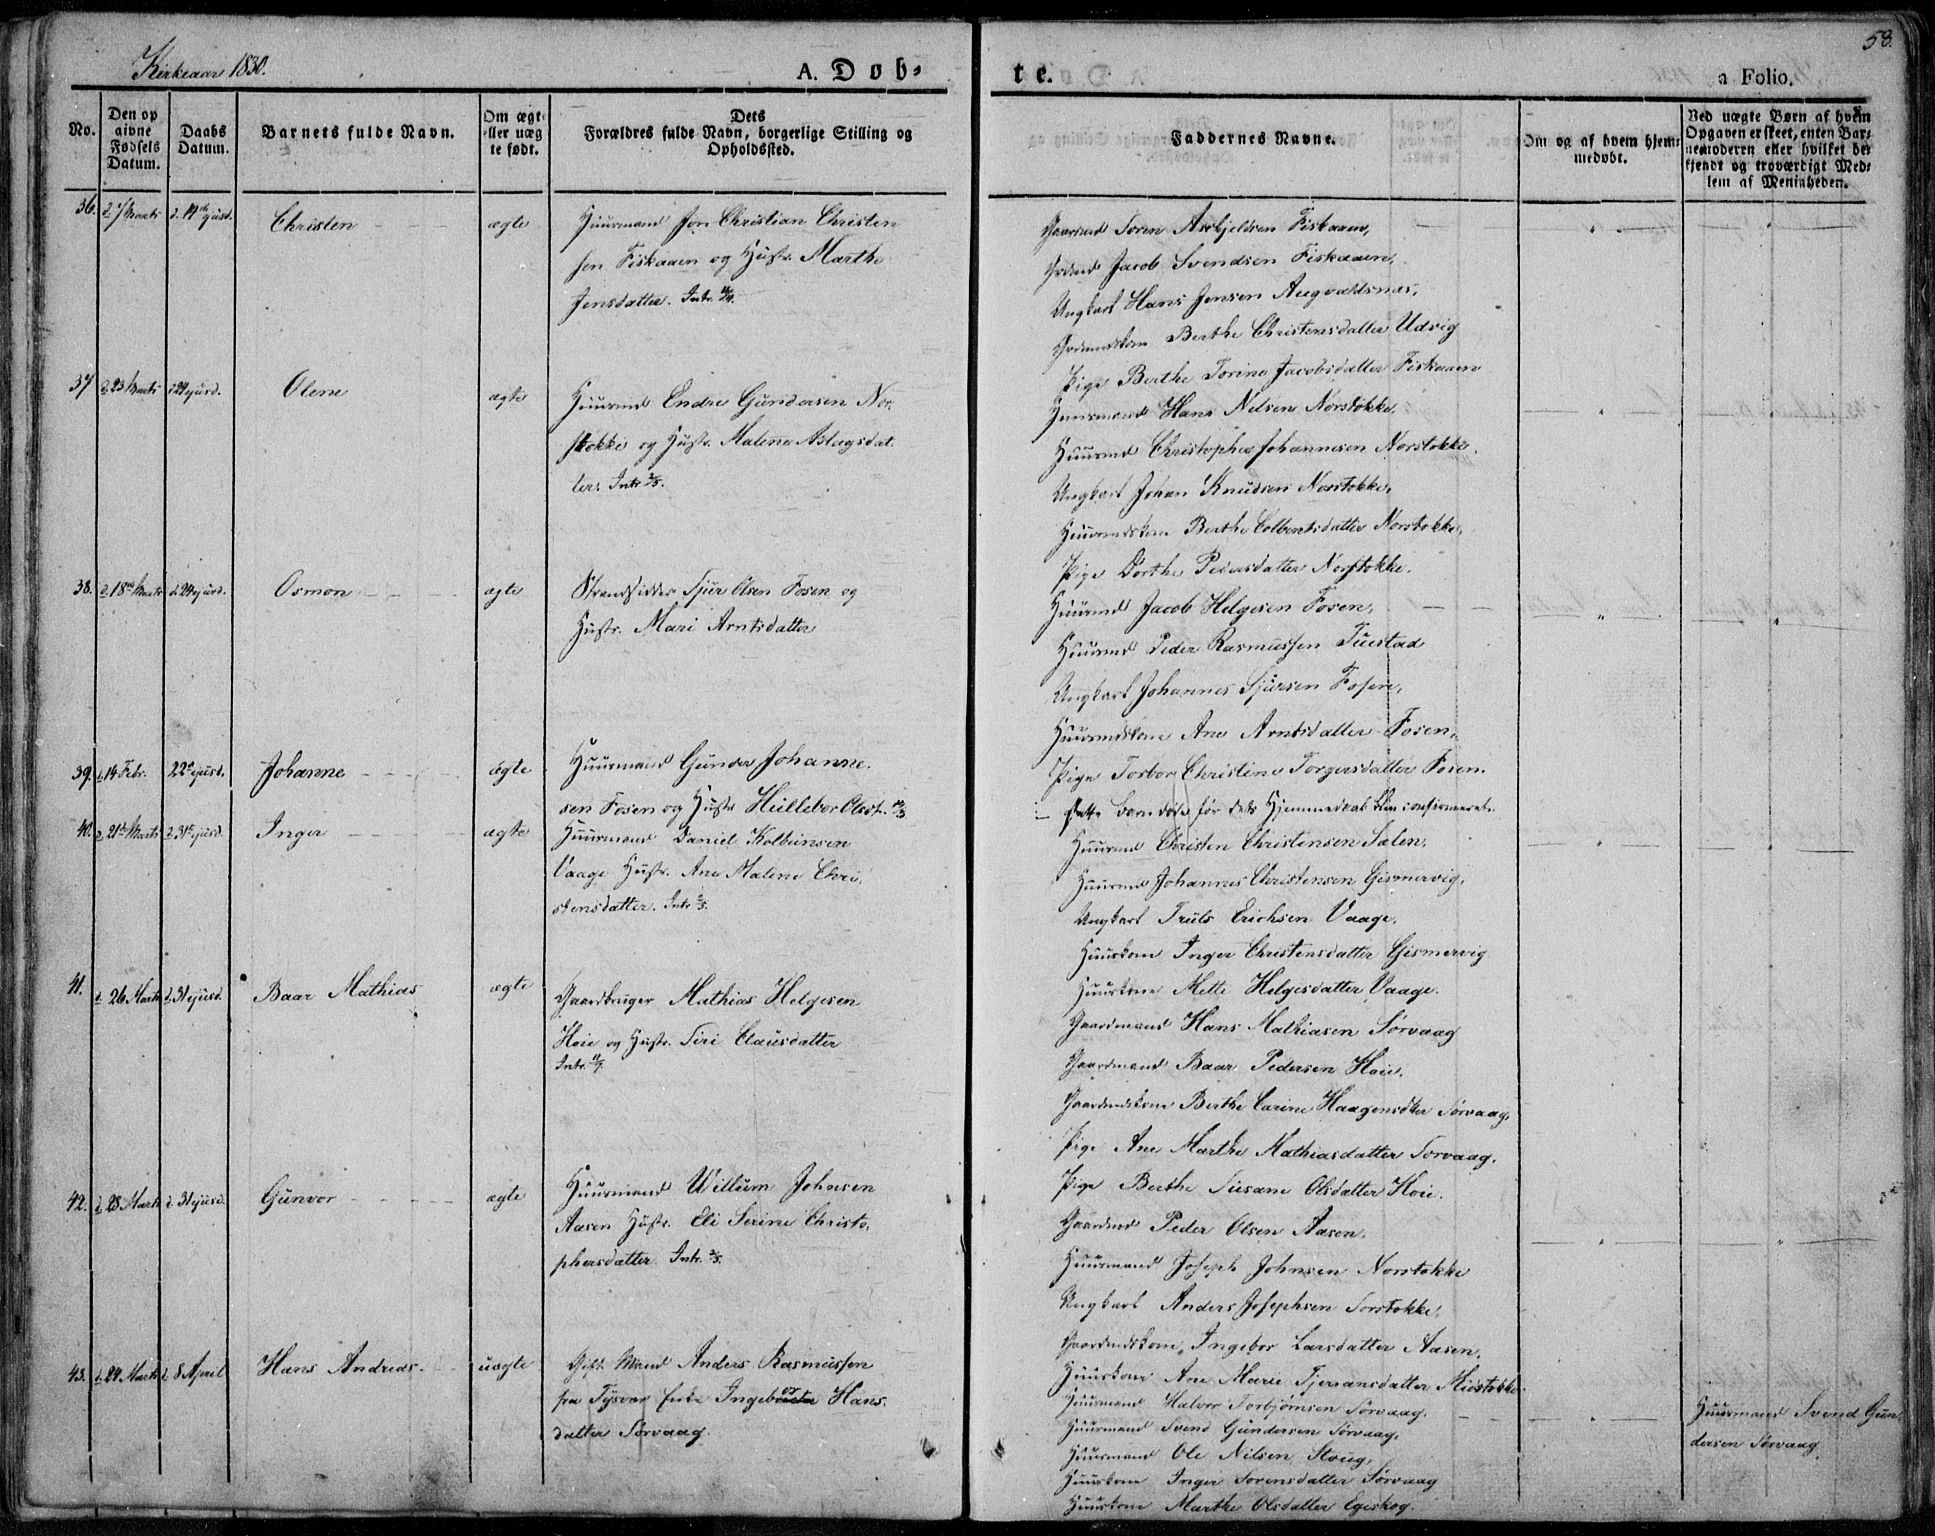 Kirkeaar 1830.
A. Døb-
te.
58.
a Folio.
No.
Den op
givne
Fødsels
Datum.
Daabs
Datum.
Barnets fulde Navn.
Om ægt
eller uæg
te født.
Dets
Forældres fulde Navn, borgerlige Stilling og
Opholdssted.
Faddernes Navne.
Om og af hvem hjem-
medøbt.
Ved uægte Børn af hvem
Opgaven er skeet, enten Bar-
nemoderen eller hvilket be-
kjendt og troværdigt Med-
lem af Menigheden.
36. d. 7 Marts d. 14de ejusd. Christen ægte
Huusmand Jon Christian Christen
sen Fiskaaen og Hustr. Marthe
Jensdatter. Intr.
Gaardmd Soren Asbjeldsen Fiskaaen,
Grdmd Jacob Svendsen Fiskaaen,
Ungkarl Hans Jensen Augvaldsnæs,
Grdmdskone Berthe Christensdatter Udvig
Pige Berthe Torine Jacobsdatter Fiskaaen
37 d. 23 Marts d 24 ejusd. Olene ægte
Huusmd Endre Gundersen Nor-
stokke og Hustr. Malene Aslagsdat-
ter. Intr. 2/5.
Huusmand Hans Nelsen Norstokke,
Huusmd Christopher Johannesen Norstokke.
Ungkarl Johan Knudsen Norstokke,
Huusmdskone Berthe Colbentsdatter Norstokke,
Pige Dorthe Pedersdatter Norstokke.
38. d. 18de Marts d. 24 ejusd. Osmon ægte
Strandsidder Sjur Olsen Fosen og
Hustr. Mari Arntsdatter
Huusmd Jacob Helgesen Fosen,
Huusmd Peder Rasmussen Tuestad
Ungkarl Johannes Sjursen Fosen,
Huusmdskone Ane Arntsdatter Fosen,
Pige Torbor Christine Torgersdatter Fosen.
39. d. 14 Febr. 22de ejusd. Johanne ægte
Huusmand Gunder Johanne-
sen Fosen og Hustr Hellebor Olsdt.
Dette Barn døde før dets Hjemmedaab blev confirmeret.
40. d. 21de Marts d. 31te ejusd. Inger ægte
Huusmand Daniel Kolbeinsen
Vaage Hustr. Ane Malene Chri-
stensdatter. Intr. 2/5.
Huusmd Christen Christensen Sælen,
Huusmd Johannes Christensen Gismervig,
Ungkarl Truls Erichsen Vaage,
Huuskone Inger Christensdatter Gismervig
Huuskone Mette Helgesdatter Vaage.
41. d. 26 Marts d. 31 ejusd. Baar Mathias ægte
Gaardbruger Mathias Helgesen
Hoie og Hustr. Siri Clausdatter
Intr.
Gaardmand Hans Mathiasen Sørvaag
Gaardmand Baar Pedersen Hoie,
Gaardmdskone Berthe Carine Haagensdtter Sørvaag,
Pige Ane Marthe Mathiasdatter Sorvaag,
Pige Berthe Susane Olsdatter Hoie.
42. d. 28 Marts d. 31 ejusd. Gunvor ægte
Huusmand Willum Johnsen
Aasen Hustr. Eli Serine Christo-
phersdatter Intr. 2/5.
Gaardmd Peder Olsen Aasen,
Huusmand Joseph Johnsen Norstokke
Ungkarl Anders Josephsen Sorstokke,
Gaardmdskone, Ingebor Larsdatter Aasen,
Huuskone Ane Marie Tjerransdatter Midstokke
43. d. 24 Marts d 8 April Hans Andreas uægte
Gift Mand Anders Rasmussen
fra Tysvær Enke Ingebor Hans-
datter Sørvaag.
Huusmand Halvor Torbjørnsen Sørvaag,
Huusmand Svend Gundersen Sørvaag,
Huusmand Ole Nilsen
Huuskone Inger Sorensdatter Sørvaag
Huuskone Marthe Olsdatter Egeskog.
Huusmand Svend Gun-
dersen Sørvaag